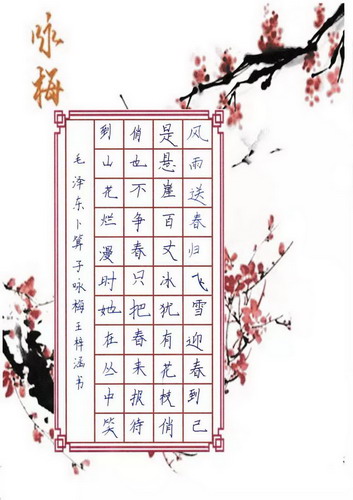 咏梅
风雨送春归飞雪迎春到已
是悬崖百丈冰犹有花枝俏
俏也不争春只把春来报待
到山花烂漫时她在丛中笑
毛泽东卜算子咏梅王梓涵书